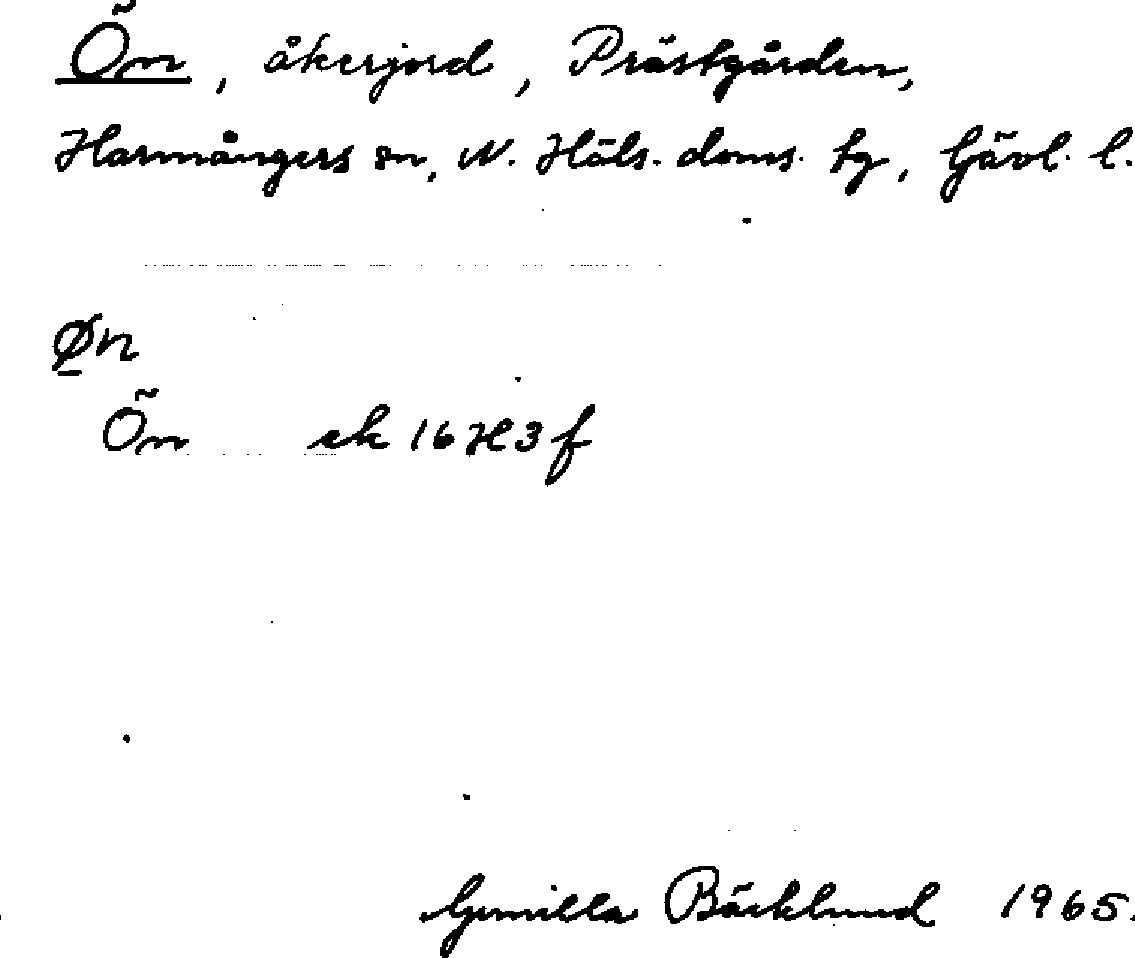 Ön, åkerjord, Prästgården,
Harmångers sn, N. Häls. doms. tg, Gävl. l.
Øn
Ön ek 16H3f
Gunilla Bäcklund 1965.